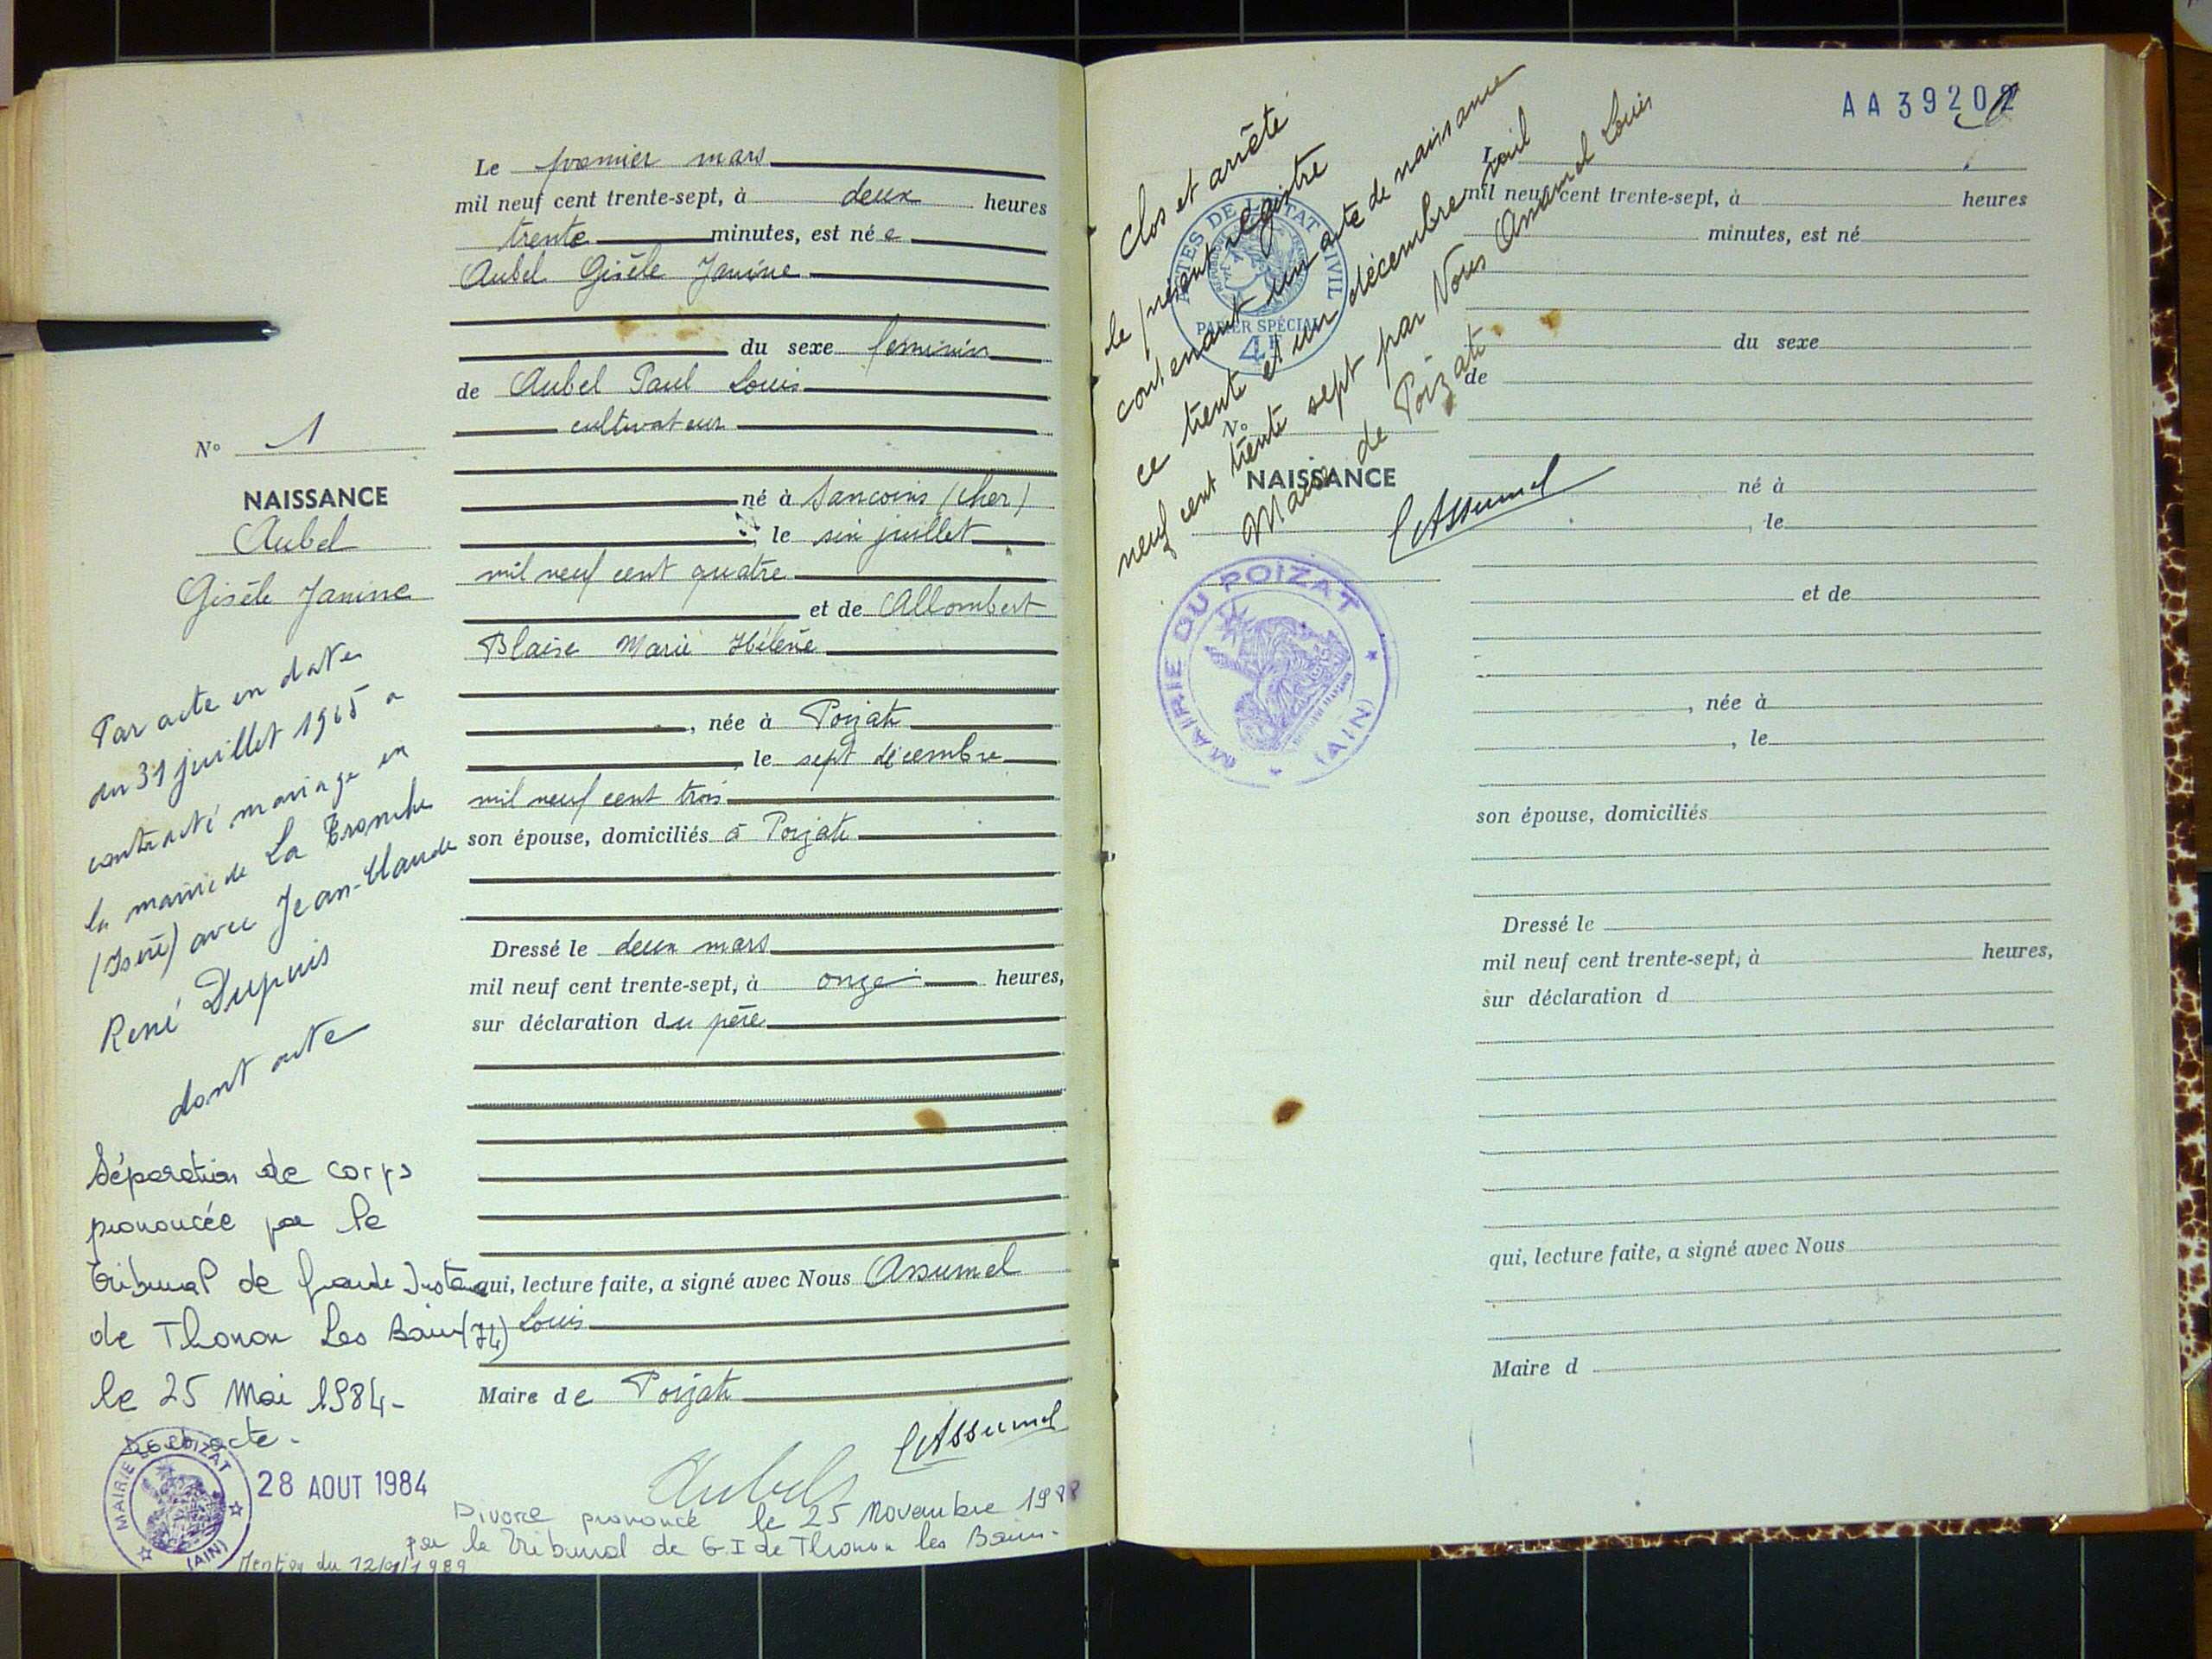 Le premier mars
mil neuf cent trente-sept, à deux heures
trente minutes, est née
Aubel Gisèle Janine
du sexe feminin
de Aubel Paul Louis
cultivateur
né à Sancoins (Cher)
, le six juillet
mil neuf cent quatre
et de Allombert
Blaise Marie Hélène
, née à Poizat
, le sept décembre
mil neuf cent trois
son épouse, domiciliés à Poizat
Dressé le deux mars
mil neuf cent trente-sept, à onze heures,
sur déclaration du père
qui, lecture faite, a signé avec Nous Assumel
Louis
Maire de Poizat
Aubel
L Assumel
No 1
NAISSANCE
Aubel
Gisèle Janine
Par acte en date
du 31 juillet 1965 a
contracté mariage en
la mairie de La Tronche
(Isère) avec Jean-Claude
René Dupuis
dont acte
Séparation de corps
prononcée par le
Tribunal de Grande Instance
de Thonon Les Bains (74)
le 25 Mai 1984-
Dont acte.
MAIRIE DU POIZAT
(AIN)
28 AOUT 1984
Divorce prononcé le 25 Novembre 1988
par le Tribunal de G.I de Thonon les Bains.
Mention du 12/9/1989
AA 3920
Clos et arrêté
le présent registre
contenant un acte de naissance
ce trente et un décembre mil
neuf cent trente sept par Nous Assumel Louis
Maire de Poizat.
L Assumel
ACTES DE L'ETAT CIVIL
PAPIER SPÉCIAL
4F
MAIRIE DU POIZAT
(AIN)
No
NAISSANCE
mil neuf cent trente-sept, à heures
minutes, est né
du sexe
de
né à
, le
et de
, née à
, le
son épouse, domiciliés
Dressé le
mil neuf cent trente-sept, à heures,
sur déclaration d
qui, lecture faite, a signé avec Nous
Maire d